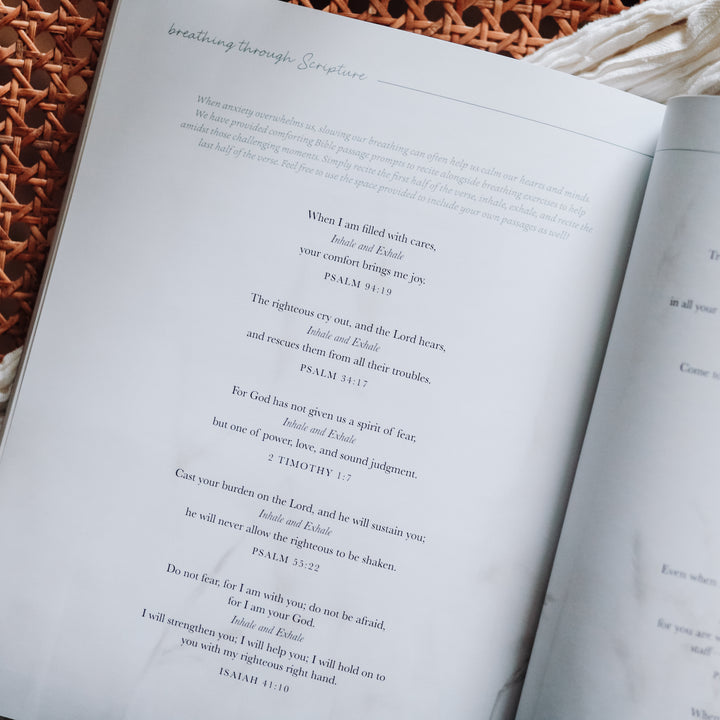 breathing through Scripture
When anxiety overwhelms us, slowing our breathing can often help us calm our hearts and minds.
We have provided comforting Bible passage prompts to recite alongside breathing exercises to help
amidst those challenging moments. Simply recite the first half of the verse, inhale, exhale, and recite the
last half of the verse. Feel free to use the space provided to include your own passages as well!
When I am filled with cares,
Inhale and Exhale
your comfort brings me joy.
PSALM 94:19
The righteous cry out, and the Lord hears,
Inhale and Exhale
and rescues them from all their troubles.
PSALM 34:17
For God has not given us a spirit of fear,
Inhale and Exhale
but one of power, love, and sound judgment.
2 TIMOTHY 1:7
Cast your burden on the Lord, and he will sustain you;
Inhale and Exhale
he will never allow the righteous to be shaken.
PSALM 55:22
Do not fear, for I am with you; do not be afraid,
for I am your God.
Inhale and Exhale
I will strengthen you; I will help you; I will hold on to
you with my righteous right hand.
ISAIAH 41:10
Tr
in all your
Come to
Even when
for you are
staff
P
Whe